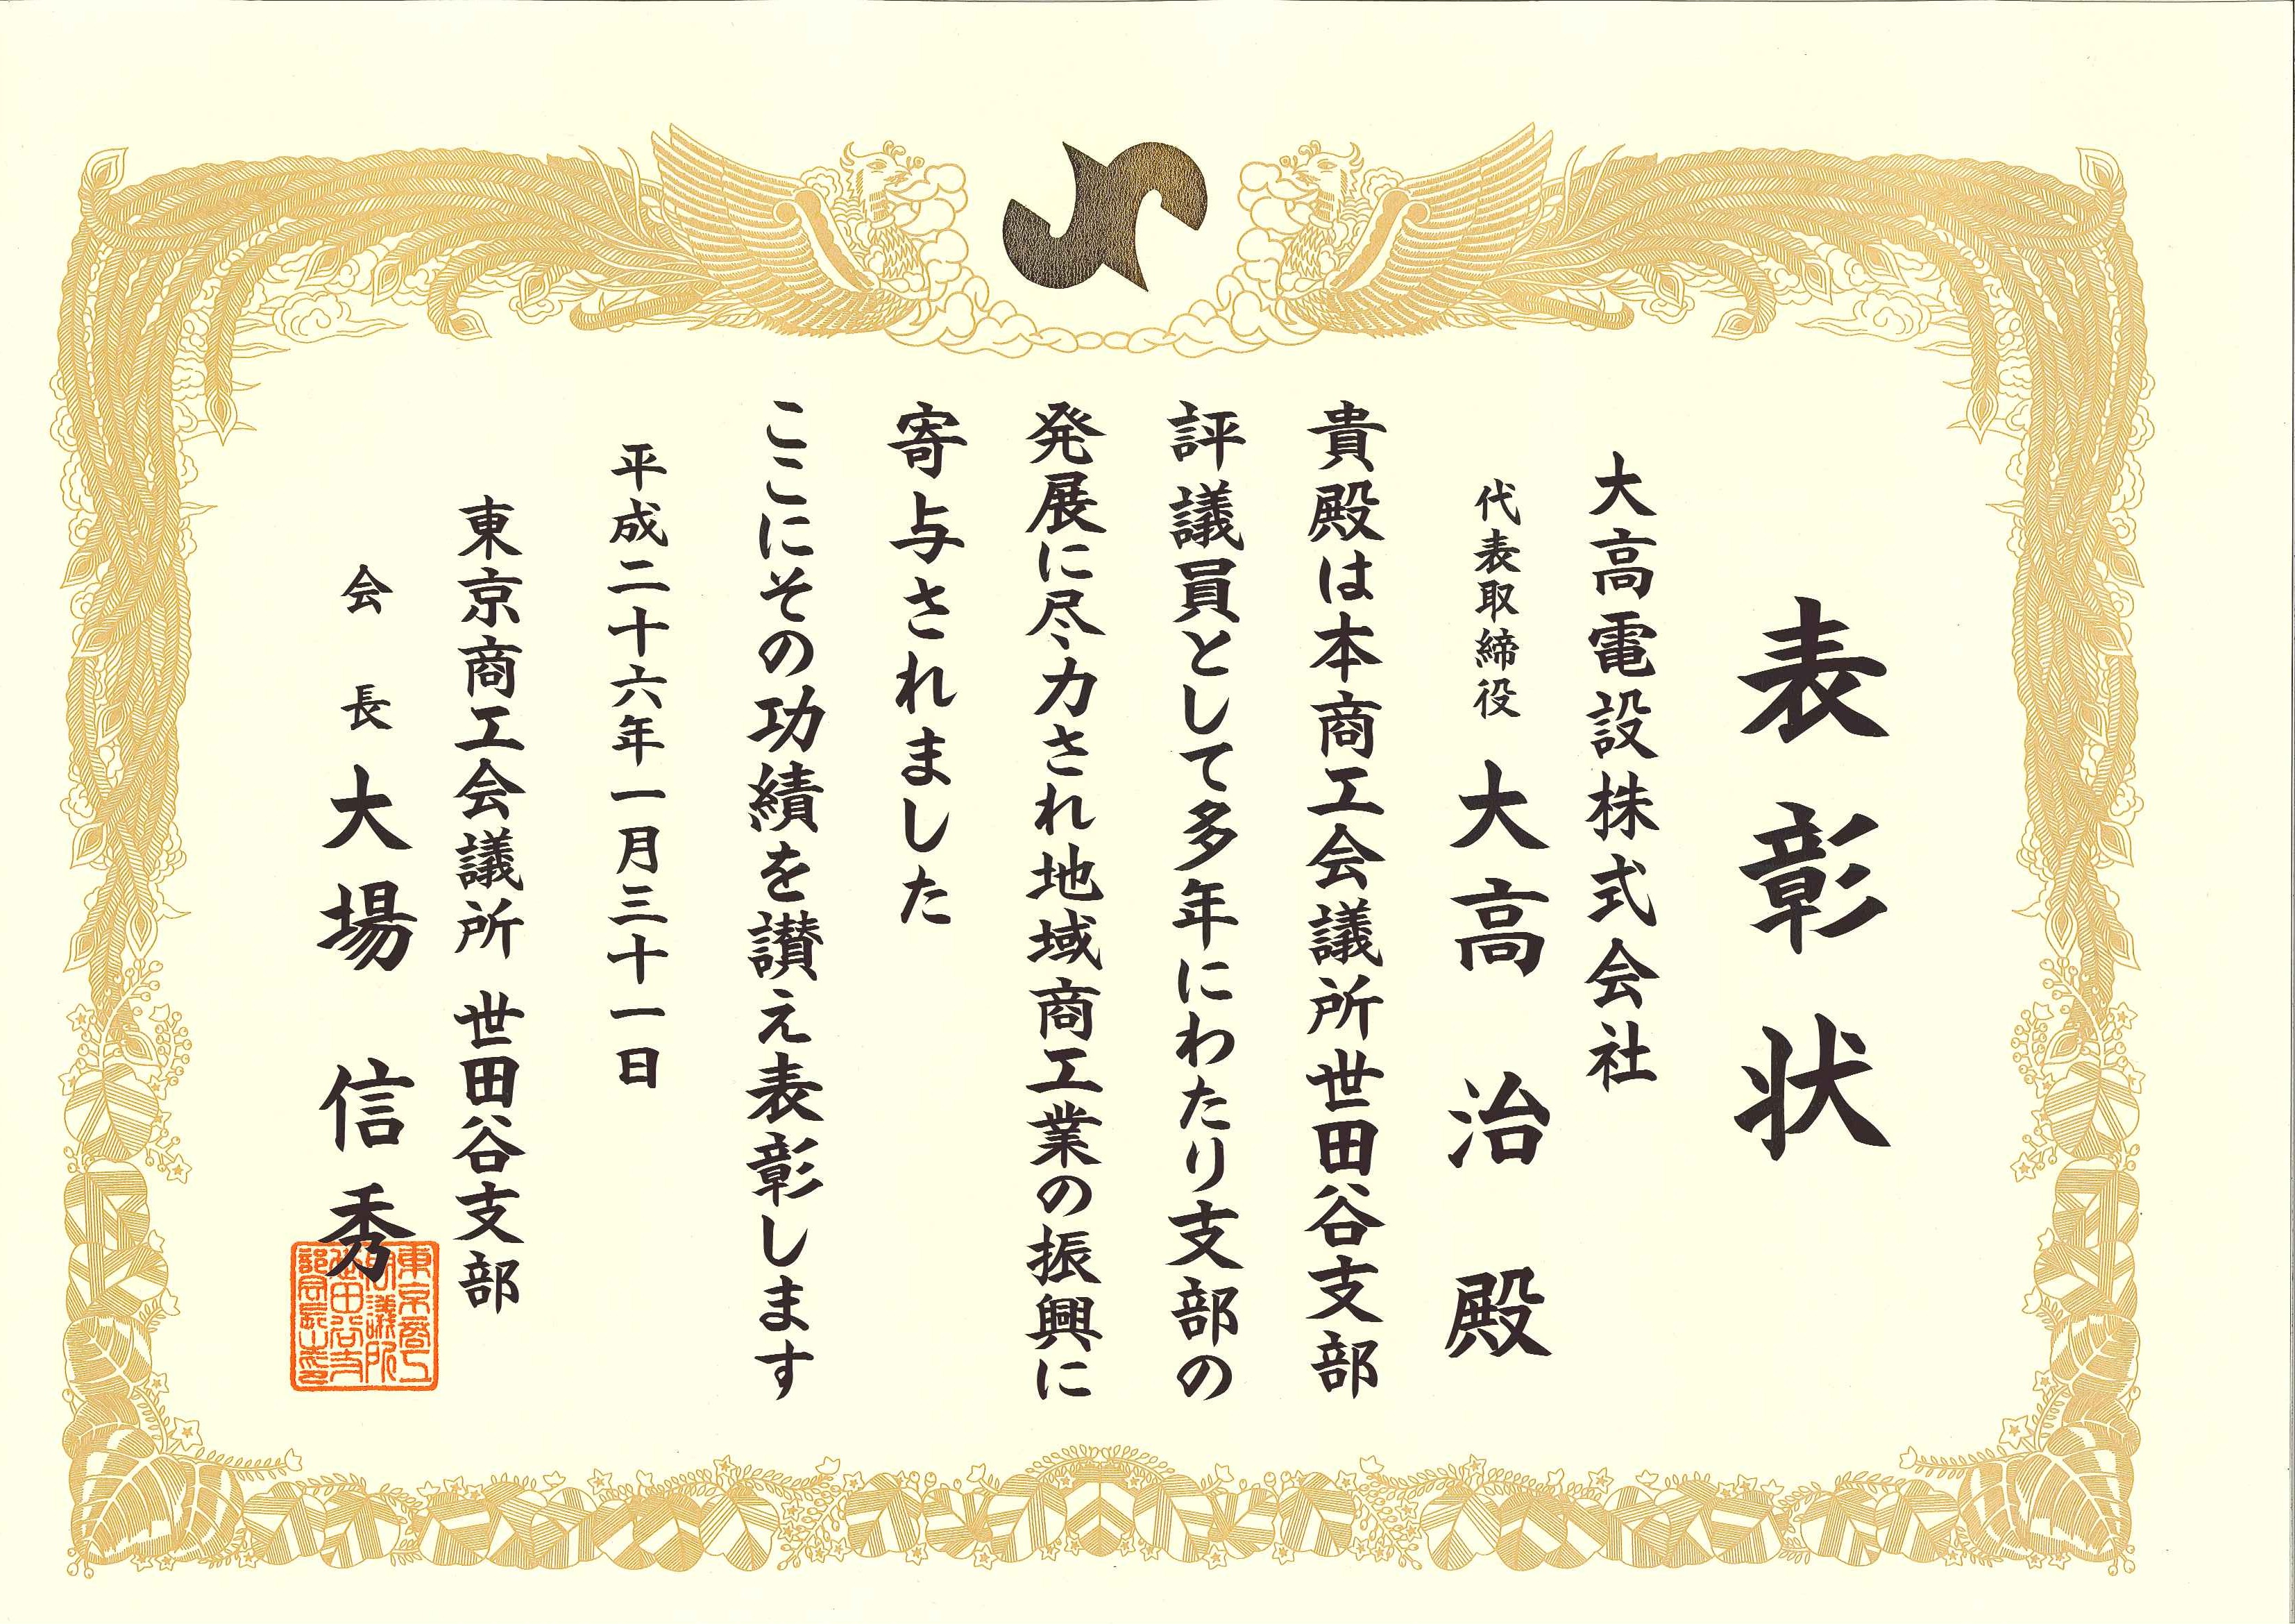 表彰状
大高電設株式会社
代表取締役 大高 治 殿
貴殿は本商工会議所世田谷支部
評議員として多年にわたり支部の
発展に尽力され地域商工業の振興に
寄与されました
ここにその功績を讃え表彰します
平成二十六年一月三十一日
東京商工会議所 世田谷支部
会長 大場 信秀
東京商工
会議所
世田谷支
部会長之印